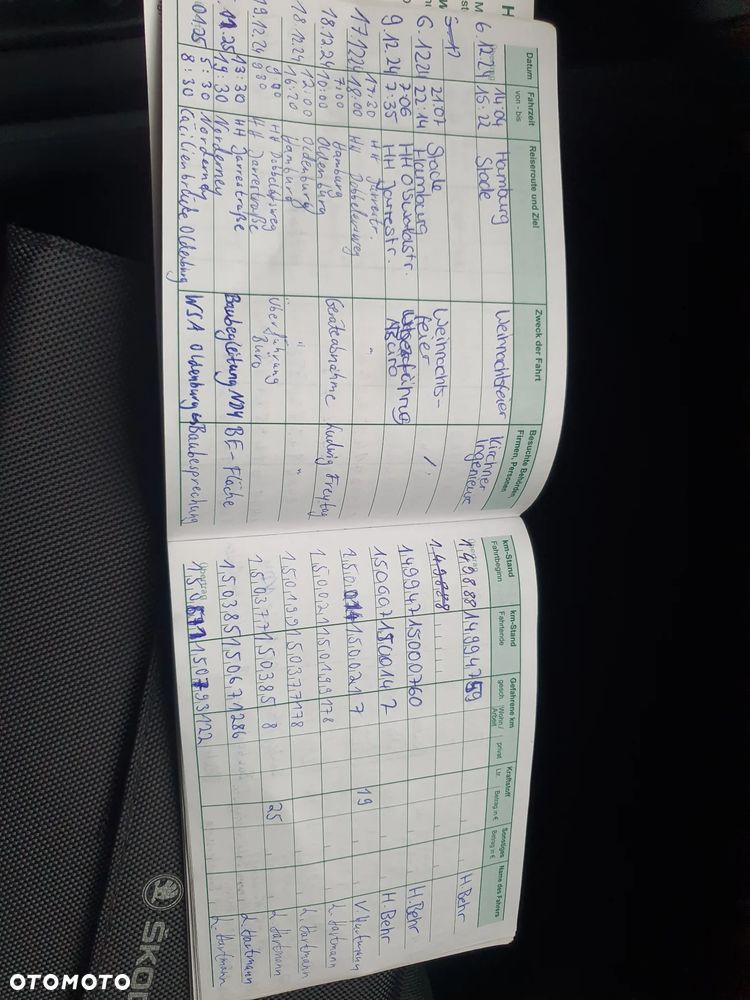 Datum
Fahrzeit
von - bis
Reiseroute und Ziel
Zweck der Fahrt
Besuchte Behörden
Firmen, Personen
km-Stand
Fahrtbeginn
km-Stand
Fahrtende
Gefahrene km
gesch.
Wohn/
Arbeit
privat
Kraftstoff
Ltr.
Betrag in €
Sonstiges
Betrag in €
Name des Fahrers
6.12.24 14:04 Hamburg Weihnachtsfeier Kirchner 149888 149947 59 H. Behr
15:22 Stade Ingenieure
6.12.24 21:07 Stade Weihnachts- / 149947 150007 60 H. Behr
22:14 Hamburg feier
9.12.24 7:06 HH Oswaldstr. 150007 150014 7 H. Behr
7:35 HH Jarrestr. Büro
17.12.24 17:30 HH Jarrestr. " 150014 150021 7 19
18:00 HH Döbbelersweg
18.12.24 7:00 Hamburg Geräteabnahme Ludwig Freytag 150021 150199 178 L. Hartmann
10:00 Oldenburg
18.12.24 12:00 Oldenburg " " 150199 150377 178 L. Hartmann
Hamburg
19.12.24 HH Döbbelersweg Überführung 150377 150385 8 25 L. Hartmann
HH Jarrestraße Büro
13:30 HH Jarrestraße Baubegleitung BE-Fläche 150385 150671 286 L. Hartmann
19:30 Norderney
01.25 5:30 Norderney WSA Oldenburg Baubesprechung 150671 150793 122 L. Hartmann
8:30 Cäcilienbrücke Oldenburg
ŠKO
OTOMOTO